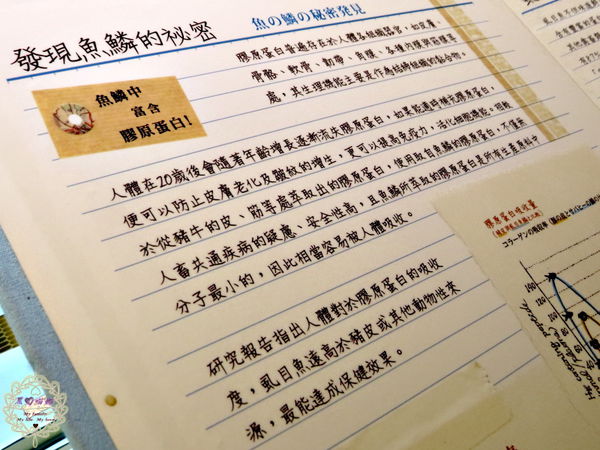 發現魚鱗的祕密
魚の鱗の秘密発見
魚鱗中
富含
膠原蛋白!
膠原蛋白普遍存在於人體各組織器官,如皮膚、
骨骼、軟骨、韌帶、角膜、各種內膜與筋膜等
處,其生理機能主要是作為結締組織的黏合物。
人體在20歲後會隨著年齡增長逐漸流失膠原蛋白,如果能適時補充膠原蛋白,
便可以防止皮膚老化及皺紋的增生,更可以提高免疫力,活化細胞機能,相較
於從豬牛的皮、筋等處萃取出的膠原蛋白,使用取自魚鱗的膠原蛋白,不僅無
人畜共通疾病的疑慮、安全性高,且魚鱗所萃取的膠原蛋白是所有生產原料中
分子最小的,因此相當容易被人體吸收。
研究報告指出人體對於膠原蛋白的吸收
度,虱目魚遠高於豬皮或其他動物性來
源,最能達成保健效果。
膠原蛋白吸收量
コラーゲンの吸収率
My family
My life My home